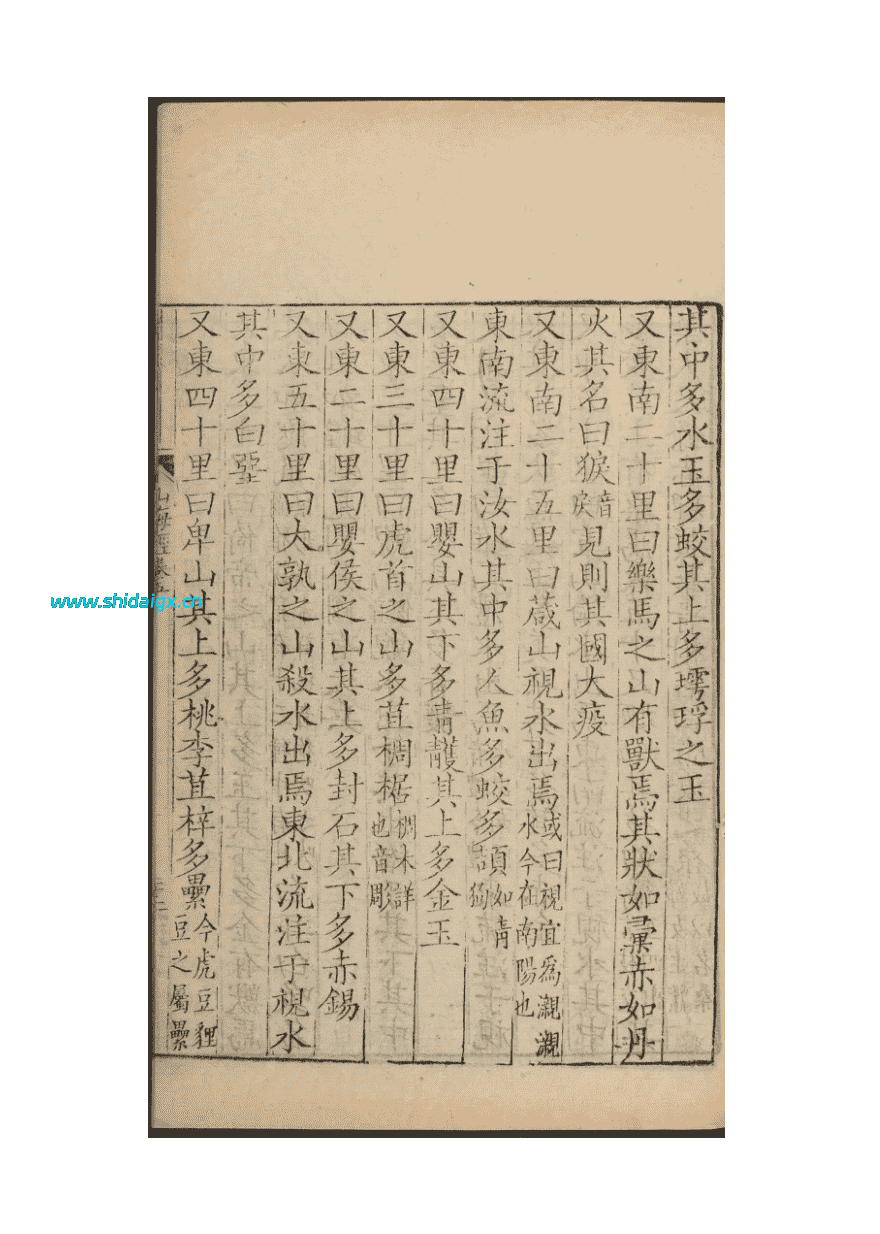 其中多水玉多蛟其上多㻬琈之玉
又東南二十里曰樂馬之山有獸焉其狀如彚赤如丹
火其名曰㹺音戾見則其國大疫
又東南二十五里曰葴山視水出焉或曰視宜爲瀙瀙水今在南陽也
東南流注于汝水其中多人魚多蛟多頡如青狗
又東四十里曰嬰山其下多青雘其上多金玉
又東三十里曰虎首之山多苴椆椐椆木詳也音彫
又東二十里曰嬰侯之山其上多封石其下多赤錫
又東五十里曰大孰之山殺水出焉東北流注于視水
其中多白堊
又東四十里曰卑山其上多桃李苴梓多纍今虎豆貍豆之屬纍
山海經卷五
www.shidaigx.cn